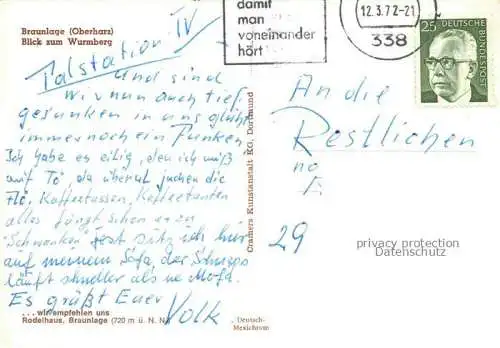 Braunlage (Oberharz)
Blick zum Wurmberg
Talstation IV
Und sind
wir nun auch tief
gesunken in uns glüht
immer noch ein Funken
Ich habe es eilig, den ich muß
auf To da überal juchen die
Flö, Kaffeetassen, Kaffeetanten
alles fängt schon an zu
Schwanken Fest sitz ich hier
auf meinem Sofa, der Schnaps
läuft shneller als ne Mofa.
Es grüßt Euer
Volk
. . . wir empfehlen uns
Rodelhaus, Braunlage (720 m ü. N. N.)
Cramers Kunstanstalt KG, Dortmund
Deutsch-
Mexichrom
damit
man
voneinander
hört
12.3.72-21
338
25
DEUTSCHE
BUNDESPOST
An die
Restlichen
29
privacy protection
Datenschutz